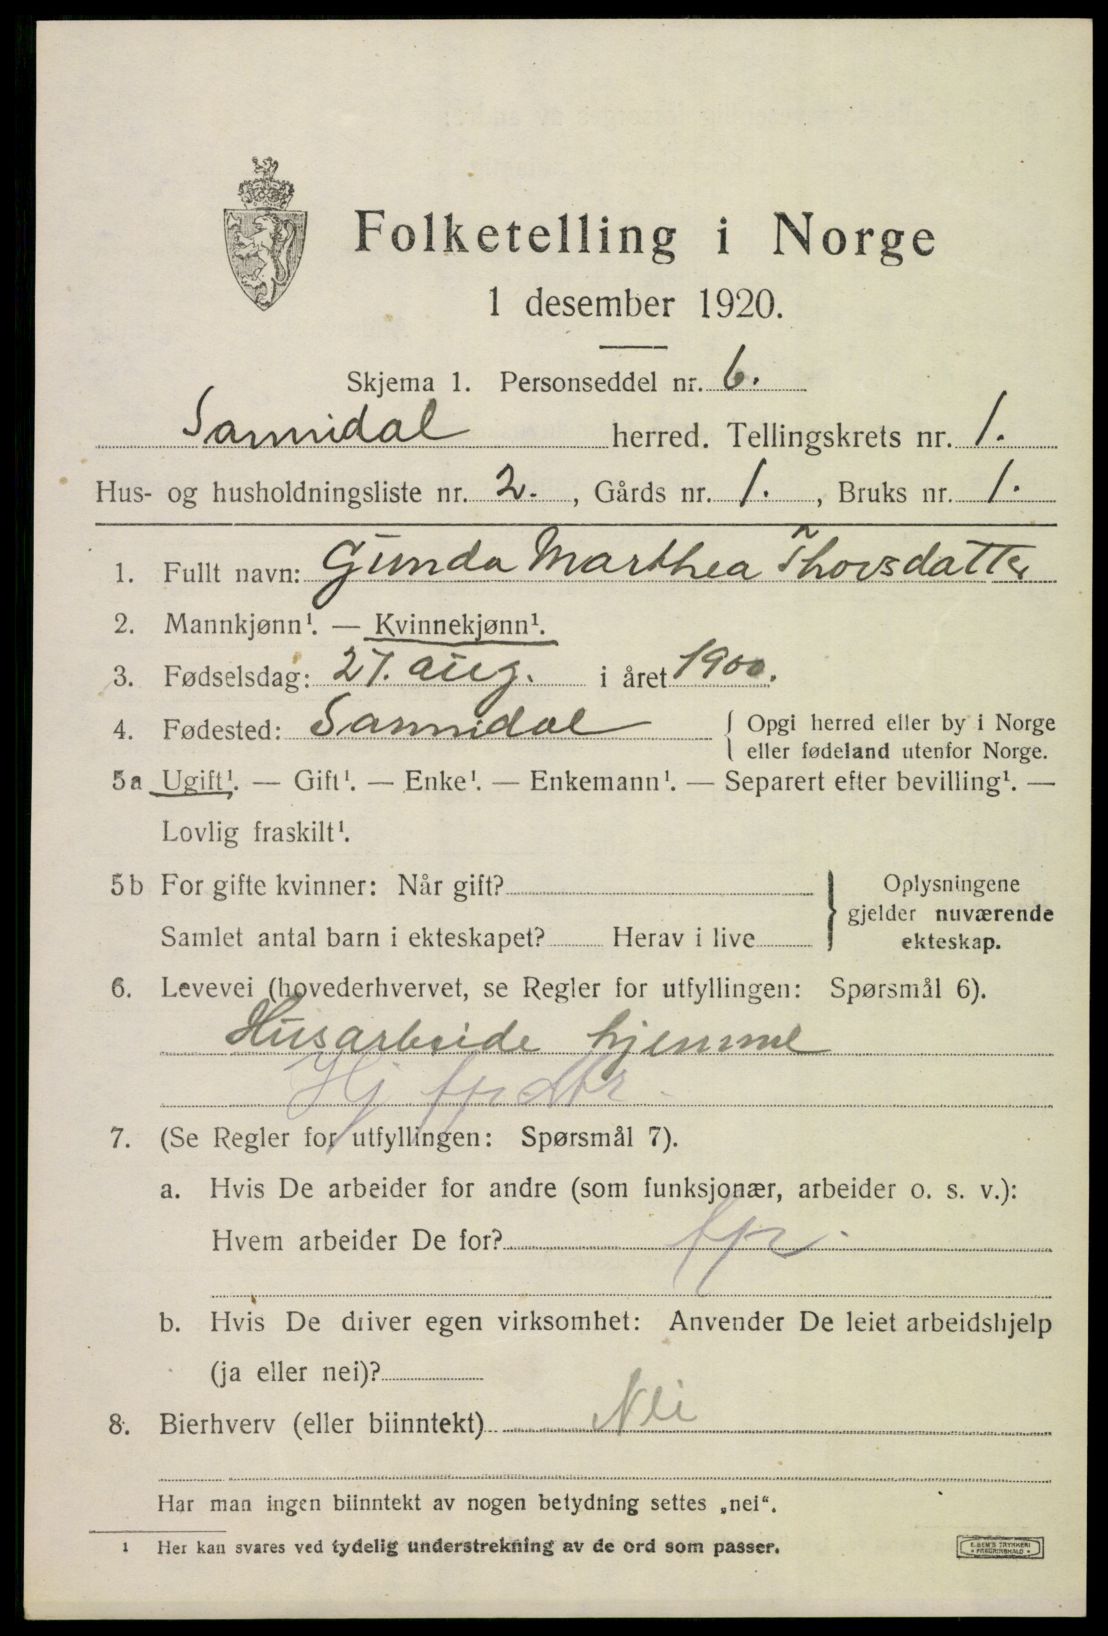 Folketelling i Norge
1 desember 1920.
Skjema 1. Personseddel nr. 6.
Sannidal herred. Tellingskrets nr. 1.
Hus- og husholdningsliste nr. 2., Gårds nr. 1., Bruks nr. 1.
1. Fullt navn: Gunda Marthea Thorsdatter
2. Mannkjønn¹. — Kvinnekjønn¹.
3. Fødselsdag: 27. aug. i året 1900.
4. Fødested: Sannidal { Opgi herred eller by i Norge
eller fødeland utenfor Norge.
5a Ugift¹. — Gift¹. — Enke¹. — Enkemann¹. — Separert efter bevilling¹. —
Lovlig fraskilt¹.
5b For gifte kvinner: Når gift?
Samlet antal barn i ekteskapet? Herav i live
} Oplysningene
gjelder nuværende
ekteskap.
6. Levevei (hovederhvervet, se Regler for utfyllingen: Spørsmål 6).
Husarbeide hjemme
Hj
7. (Se Regler for utfyllingen: Spørsmål 7).
a. Hvis De arbeider for andre (som funksjonær, arbeider o. s. v.):
Hvem arbeider De for?
b. Hvis De driver egen virksomhet: Anvender De leiet arbeidshjelp
(ja eller nei)?
8. Bierhverv (eller biinntekt) Nei
Har man ingen biinntekt av nogen betydning settes „nei“.
1 Her kan svares ved tydelig understrekning av de ord som passer.
E. SEM'S TRYKKERI
FREDRIKSHALD